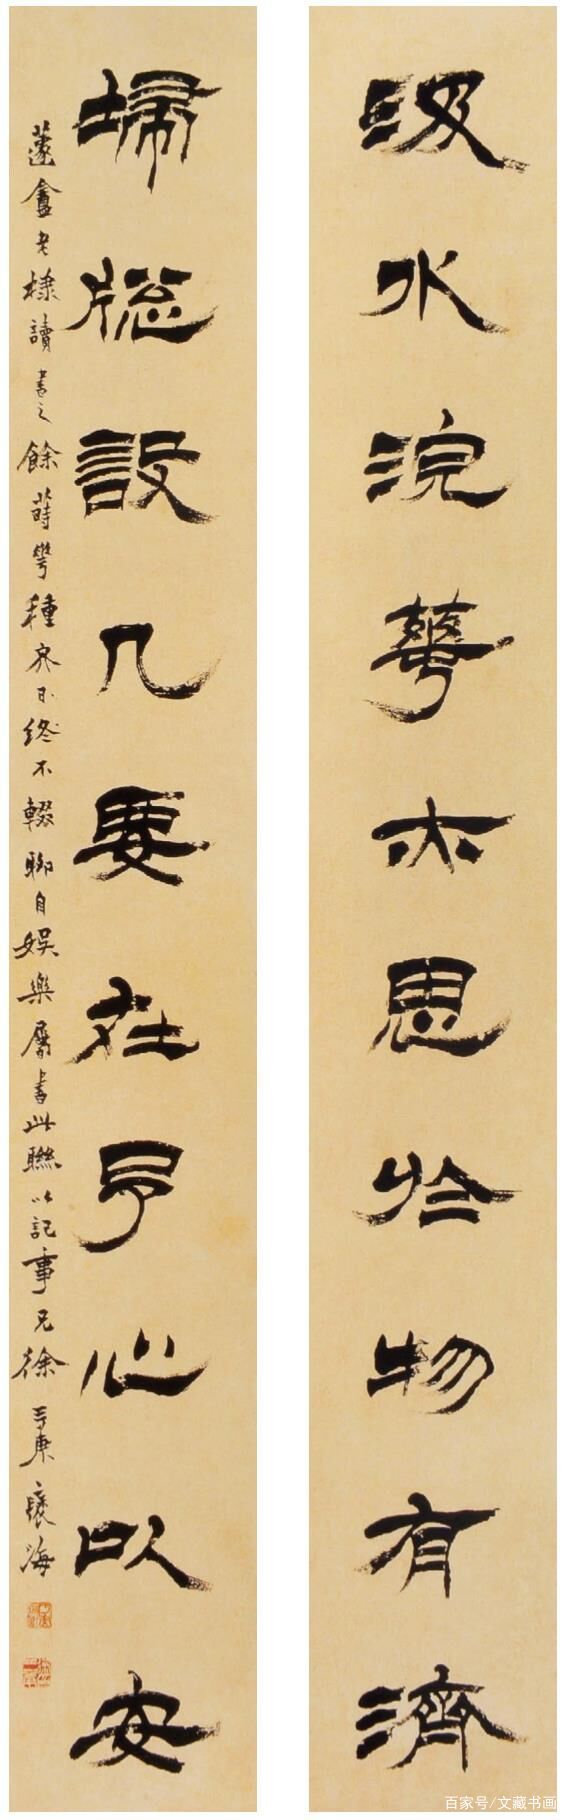 汲水浣華亦思於物有濟
埽窗設几要在予心以安
蘧盦老棣讀書之餘蒔花種竹日終不輟聊自娛樂屬書此聯以記事兄徐三庚褎海
百家号/文藏书画